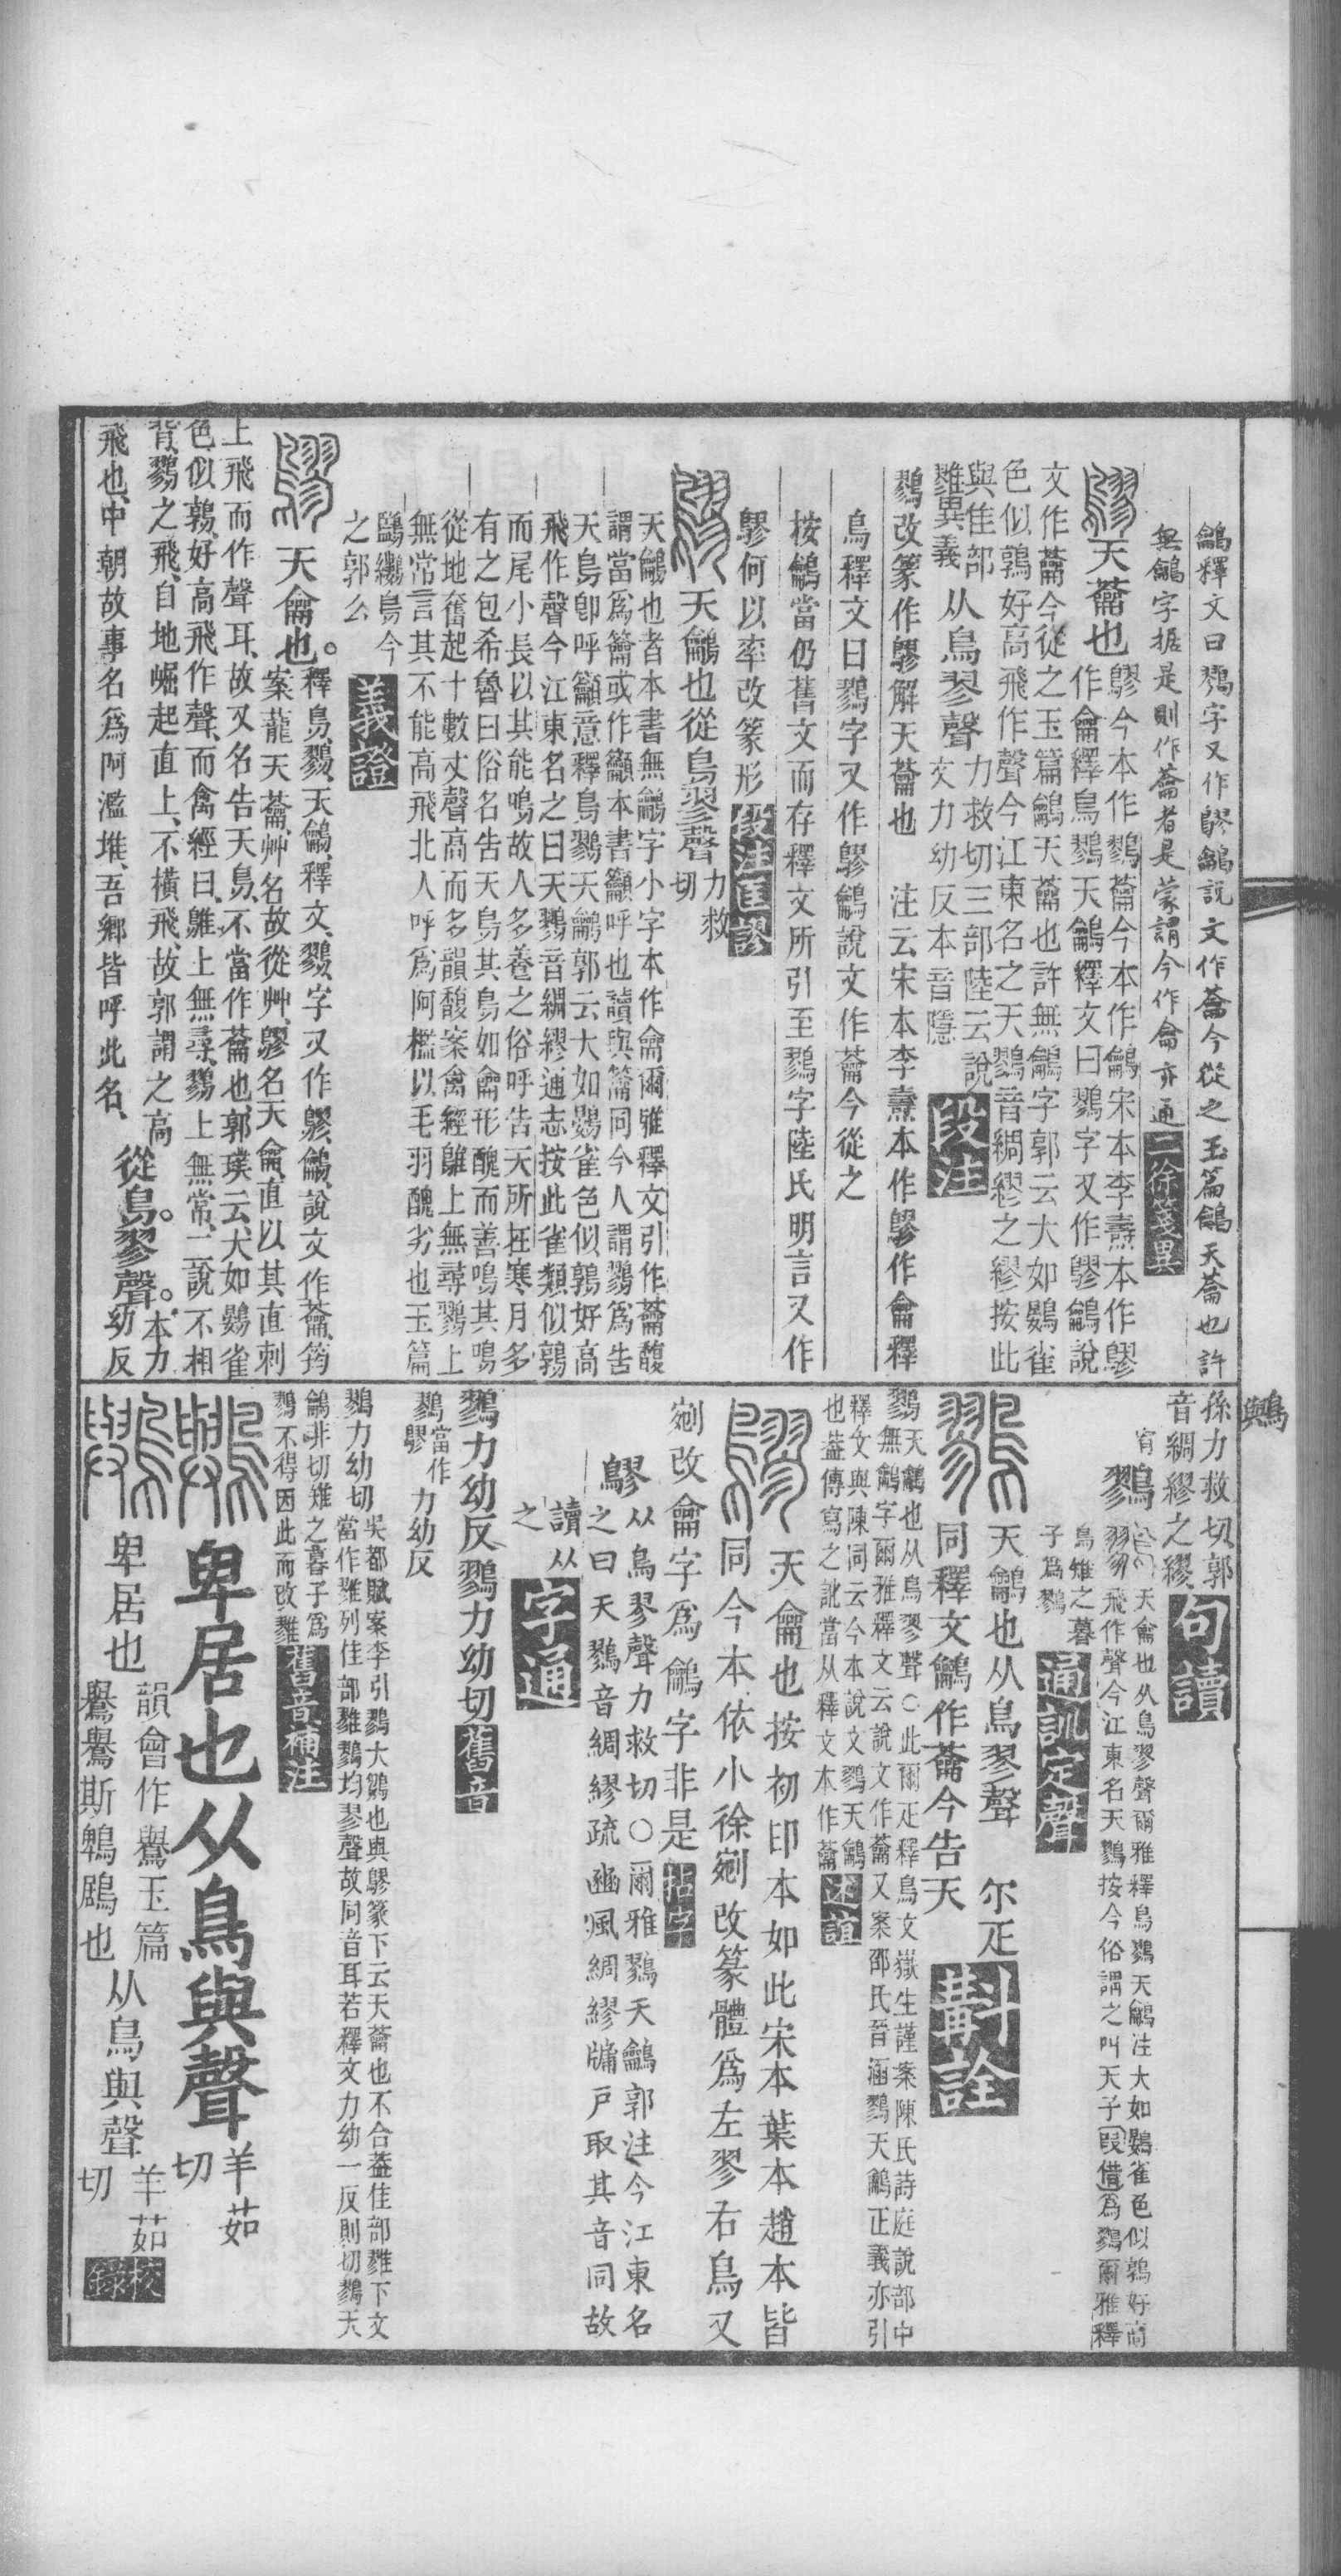 鷚釋文曰鷚字又作䬟鸙說文作蘥今從之玉篇鸙天蘥也許
無鸙字据是則作蘥者是蒙謂今作龠亦通
二徐箋異
天蘥也
䬟今本作鷚蘥今本作鸙宋本李燾本作䬟
作龠釋鳥鷚天鸙釋文曰鷚字又作䬟鸙說
文作蘥今從之玉篇鸙天蘥也許無鸙字郭云大如鷃雀
色似鶉好高飛作聲今江東名之天鷚音綢繆之繆按此
與隹部
雡異義
从鳥翏聲
力救切三部陸云說
文力幼反本音隱
段注
鷚改篆作䬟解天蘥也　注云宋本李燾本作䬟作龠釋
鳥釋文曰鷚字又作䬟鸙說文作蘥今從之
按鸙當仍舊文而存釋文所引至鷚字陸氏明言又作
䬟何以率改篆形
段注匡謬
天鸙也從鳥翏聲
力救
切
天鸙也者本書無鸙字小字本作龠爾雅釋文引作蘥馥
謂當爲籥或作籲本書籲呼也讀與籥同今人謂鷚爲告
天鳥卽呼籲意釋鳥鷚天鸙郭云大如鷃雀色似鶉好高
飛作聲今江東名之曰天鷚音綢繆通志按此雀類似鶉
而尾小長以其能鳴故人多養之俗呼告天所在寒月多
有之包希魯曰俗名告天鳥其鳥如龠形醜而善鳴其鳴
從地奮起十數丈聲高而多韻馥案禽經鷚上無尋鷚上
無常言其不能高飛北人呼爲阿檻以毛羽醜劣也玉篇
之郭么
義證
天龠也。
釋鳥、鷚、天鸙、釋文、鷚字又作䬟、鸙、說文作蘥、筠
案蘢天蘥、艸名故從艸、䬟名天龠、直以其直刺
上飛而作聲耳、故又名告天鳥、不當作蘥也、郭璞云、大如鷃雀
色似鶉、好高飛作聲、而禽經曰、鷚上無尋、鷚上無常、二說不相
背、鷚之飛、自地崛起直上、不橫飛、故郭謂之高
飛也、中朝故事名爲阿濫堆、吾鄉皆呼此名、
從鳥。翏聲。
本力
幼反
孫力救切郭
音綢繆之繆
句讀
鷚
天龠也从鳥翏聲爾雅釋鳥鷚天鸙注大如鷃雀色似鶉好高
飛作聲今江東名天鷚按今俗謂之叫天子叚借爲鷚爾雅釋
鳥雉之暮
子爲鷚
通訓定聲
天鸙也从鳥翏聲　尔疋
同釋文鸙作蘥今告天
斠詮
鷚天鸙也从鳥翏聲〇此爾疋釋鳥文嶽生謹案陳氏詩庭說部中
無鸙字爾雅釋文云說文作蘥又案邵氏晉涵鷚天鸙正義亦引
釋文與陳同云今本說文鷚天鸙
也葢傳寫之訛當从釋文本作蘥
述誼
天龠也按初印本如此宋本葉本趙本皆
同今本依小徐剜改篆體爲左翏右鳥又
剜改龠字爲鸙字非是
䬟
从鳥翏聲力救切〇爾雅鷚天鸙郭注今江東名
之曰天鷚音綢繆疏豳風綢繆牖戶取其音同故
讀从
之
字通
鷚力幼反鷚力幼切
舊音
鷚當作
䬟
力幼反
鷚力幼切
吳都賦案李引鷚大鶵也與䬟篆下云天蘥也不合葢隹部雡下文
當作雡列隹部雡鷚均翏聲故同音耳若釋文力幼一反則切鷚天
鸙非切雉之暮子爲
鷚不得因此而改雡
舊音補注
卑居也从鳥與聲
羊茹
切
卑居也
韻會作鸒玉篇
鸒鸒斯鵯鶋也
从鳥與聲
羊茹
切
校錄
鸒